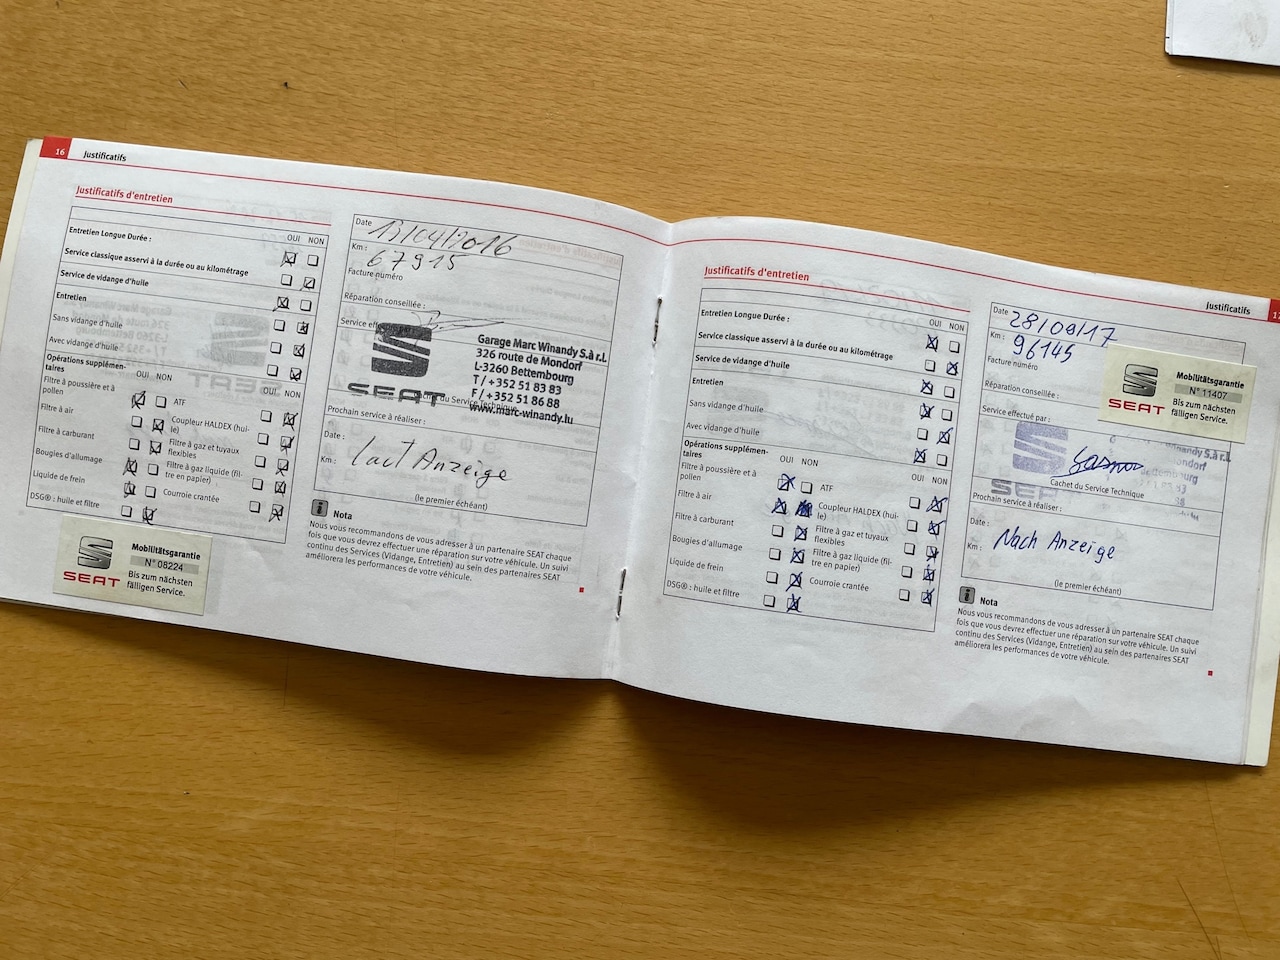 16 Justificatifs
Justificatifs d'entretien
OUI NON
Entretien Longue Durée :
Service classique asservi à la durée ou au kilométrage
Service de vidange d'huile
Entretien
Sans vidange d'huile
Avec vidange d'huile
Opérations supplémen-
taires
OUI NON
OUI NON
Filtre à poussière et à
pollen
ATF
Filtre à air
Coupleur HALDEX (hui-
le)
Filtre à carburant
Filtre à gaz et tuyaux
flexibles
Bougies d'allumage
Filtre à gaz liquide (fil-
tre en papier)
Liquide de frein
Courroie crantée
DSG® : huile et filtre
SEAT
Mobilitätsgarantie
N° 08224
Bis zum nächsten
fälligen Service.
Date 13/04/2016
Km : 67915
Facture numéro
Réparation conseillée :
Service
SEAT
Garage Marc Winandy S.à r.l.
326 route de Mondorf
L-3260 Bettembourg
T / +352 51 83 83
F / +352 51 86 88
www.marc-winandy.lu
Prochain service à réaliser :
Date :
Km : Anzeige
(le premier échéant)
Nota
Nous vous recommandons de vous adresser à un partenaire SEAT chaque
fois que vous devrez effectuer une réparation sur votre véhicule. Un suivi
continu des Services (Vidange, Entretien) au sein des partenaires SEAT
améliorera les performances de votre véhicule.
Justificatifs
Justificatifs d'entretien
OUI NON
Entretien Longue Durée :
Service classique asservi à la durée ou au kilométrage
Service de vidange d'huile
Entretien
Sans vidange d'huile
Avec vidange d'huile
Opérations supplémen-
taires
OUI NON
OUI NON
Filtre à poussière et à
pollen
ATF
Filtre à air
Coupleur HALDEX (hui-
le)
Filtre à carburant
Filtre à gaz et tuyaux
flexibles
Bougies d'allumage
Filtre à gaz liquide (fil-
tre en papier)
Liquide de frein
Courroie crantée
DSG® : huile et filtre
Date 28/09/17
Km : 96145
Facture numéro
Réparation conseillée :
SEAT
Mobilitätsgarantie
N° 11407
Bis zum nächsten
fälligen Service.
Service effectué par :
Cachet du Service Technique
Prochain service à réaliser :
Date :
Km : Nach Anzeige
(le premier échéant)
Nota
Nous vous recommandons de vous adresser à un partenaire SEAT chaque
fois que vous devrez effectuer une réparation sur votre véhicule. Un suivi
continu des Services (Vidange, Entretien) au sein des partenaires SEAT
améliorera les performances de votre véhicule.